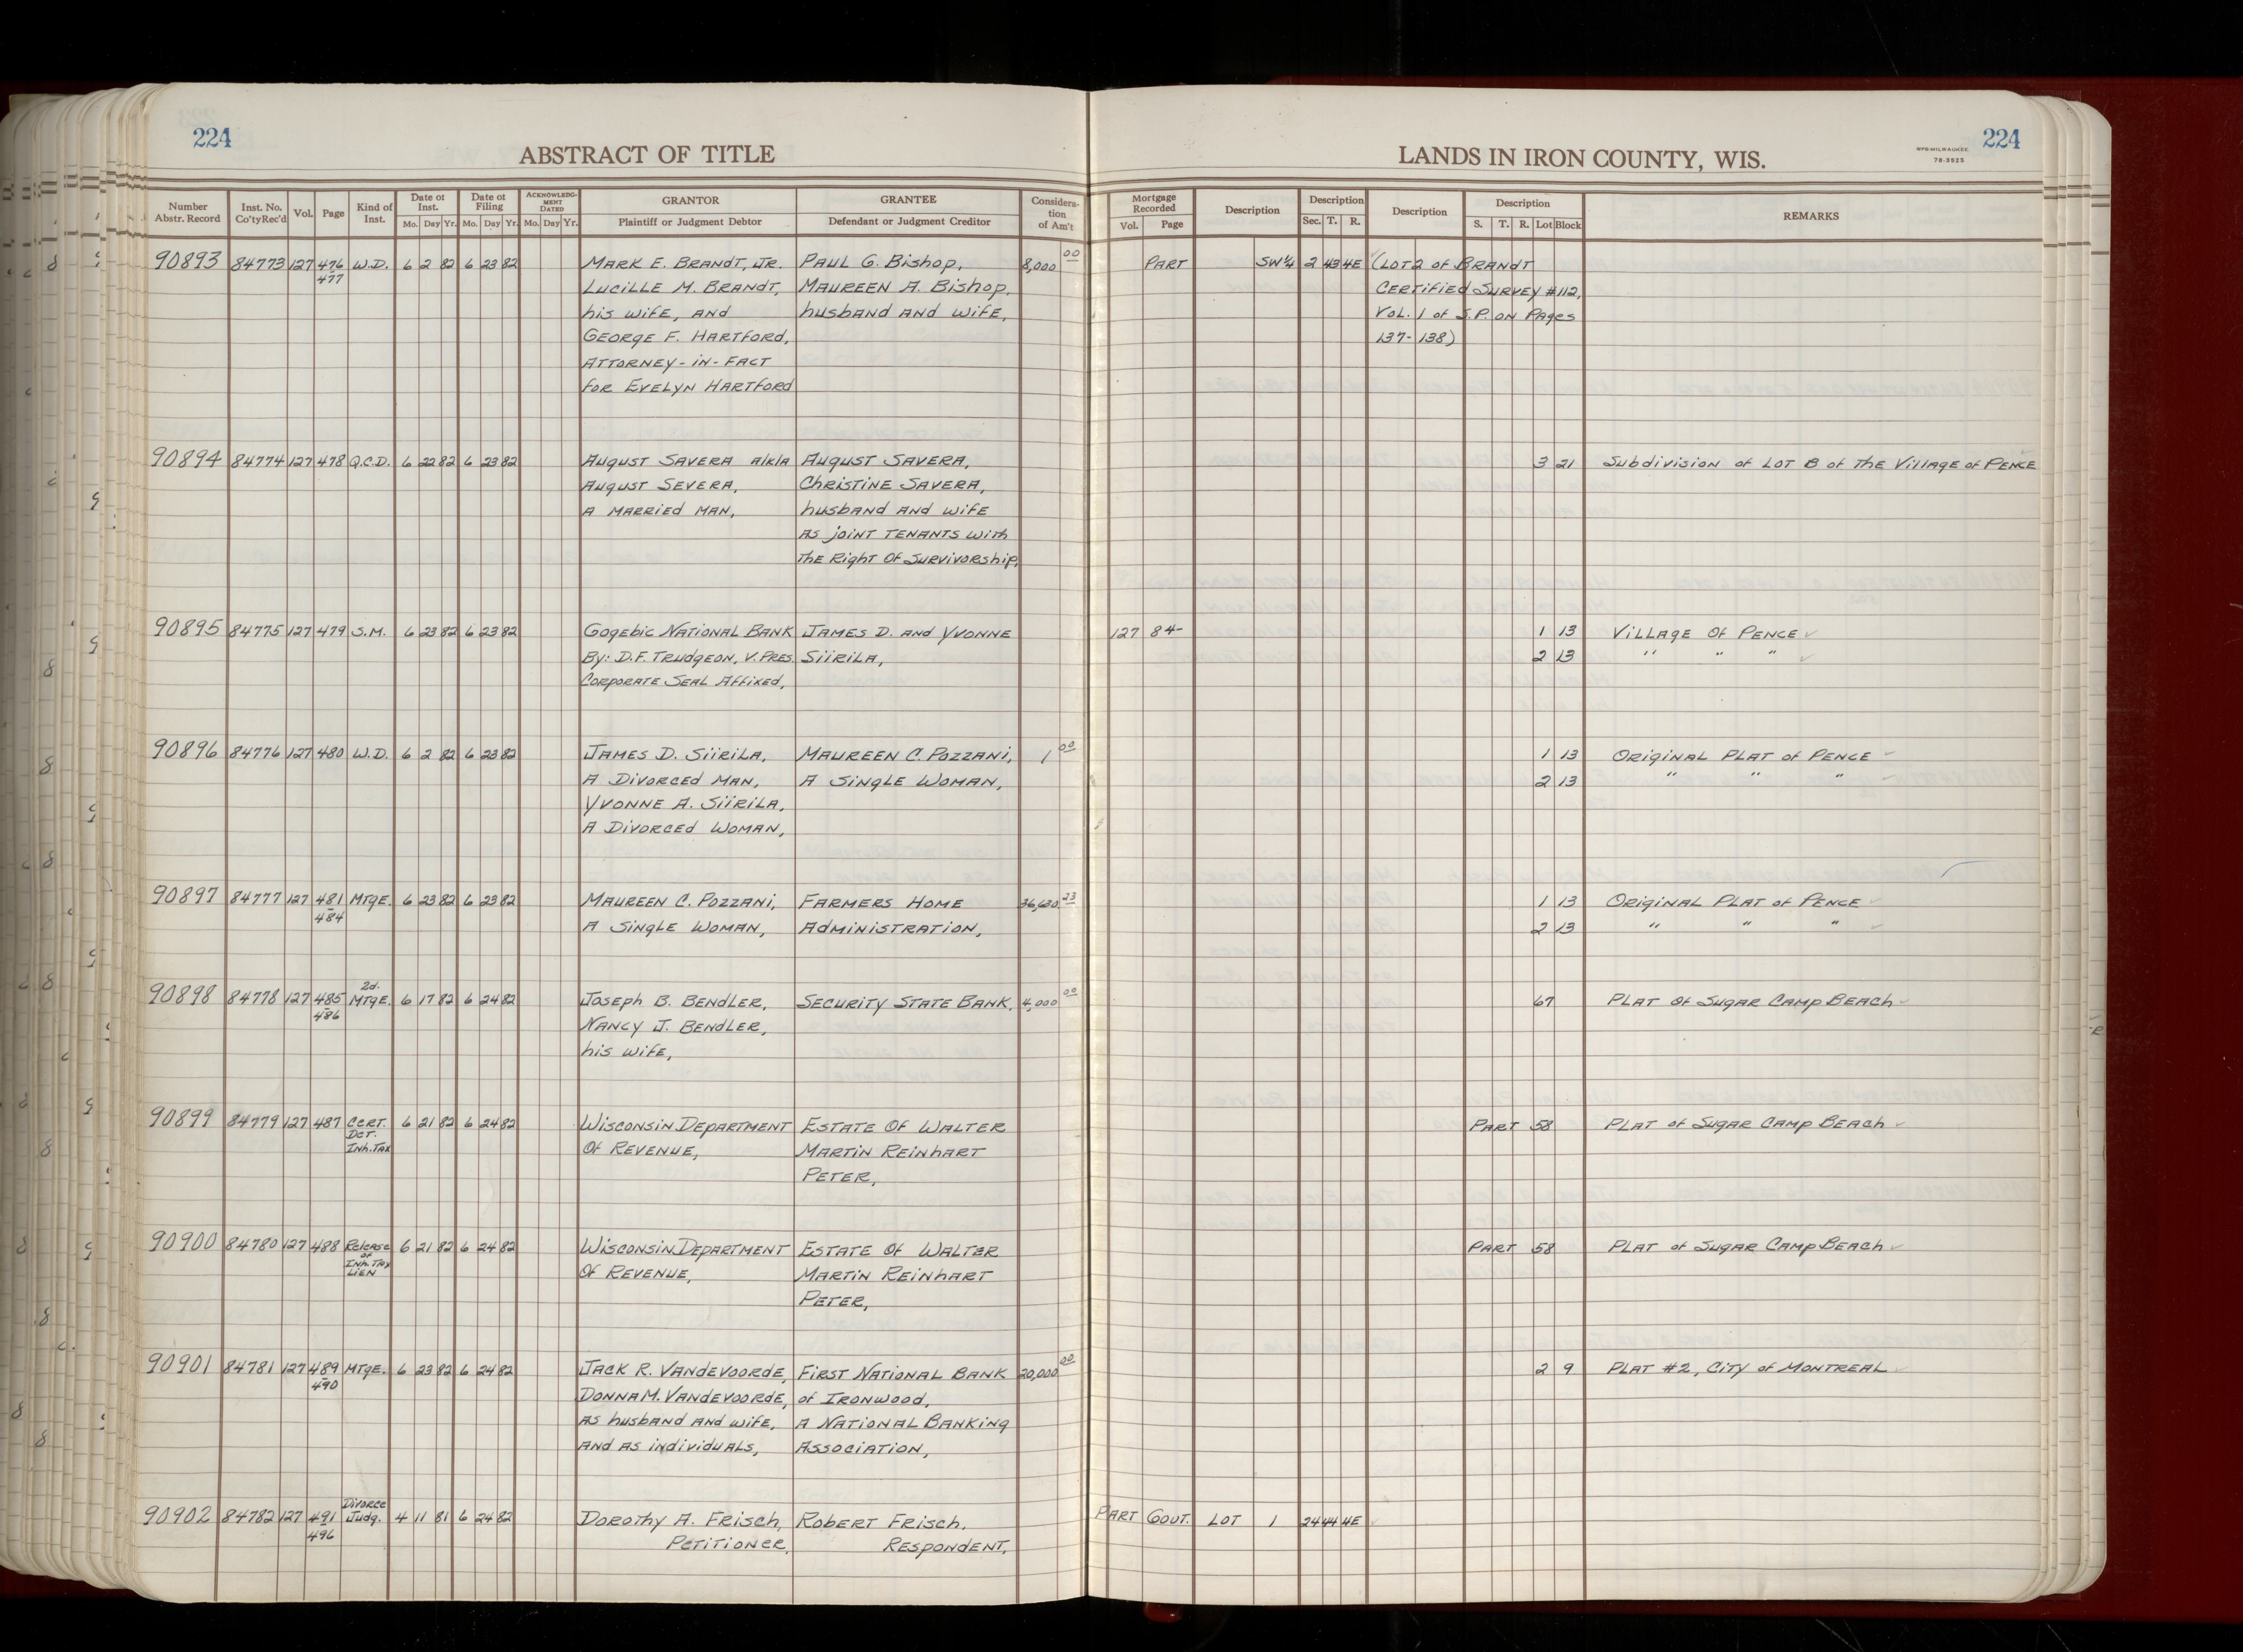 224
ABSTRACT OF TITLE
LANDS IN IRON COUNTY, WIS.
WPS-MILWAUKEE
78-3525
224
Number Abstr. Record | Inst. No. Co'ty Rec'd | Vol. | Page | Kind of Inst. | Date of Inst. Mo. Day Yr. | Date of Filing Mo. Day Yr. | ACKNOWLEDGMENT DATED Mo. Day Yr. | GRANTOR Plaintiff or Judgment Debtor | GRANTEE Defendant or Judgment Creditor | Consideration of Am't | Mortgage Recorded Vol. Page | Description | Description Sec. T. R. | Description | Description S. T. R. Lot Block | REMARKS
90893 84773 127 476 W.D. 6 2 82 6 23 82 MARK E. BRANDT, JR. PAUL G. BISHOP, 8,000 00 PART SW¼ 2 43 4E (LOT 2 OF BRANDT
477 LUCILLE M. BRANDT, MAUREEN A. BISHOP, CERTIFIED SURVEY #112,
his WIFE, AND husband AND WIFE, VOL. 1 of S.P. ON PAGES
GEORGE F. HARTFORD, 137-138)
ATTORNEY-IN-FACT
FOR EVELYN HARTFORD
90894 84774 127 478 Q.C.D. 6 22 82 6 23 82 AUGUST SAVERA a/k/a AUGUST SAVERA, 3 21 Subdivision of LOT B of THE VILLAGE of PENCE
AUGUST SEVERA, CHRISTINE SAVERA,
A MARRIED MAN, husband AND WIFE
AS JOINT TENANTS with
THE RIGHT OF SURVIVORSHIP,
90895 84775 127 479 S.M. 6 23 82 6 23 82 GOGEBIC NATIONAL BANK JAMES D. and YVONNE 127 84- 1 13 VILLAGE OF PENCE
By: D.F. TRUDGEON, V. PRES. SIIRILA, 2 13 " " "
CORPORATE SEAL AFFIXED,
90896 84776 127 480 W.D. 6 2 82 6 23 82 JAMES D. SIIRILA, MAUREEN C. POZZANI, 1 00 1 13 ORIGINAL PLAT of PENCE
A DIVORCED MAN, A SINGLE WOMAN, 2 13 " " "
YVONNE A. SIIRILA,
A DIVORCED WOMAN,
90897 84777 127 481 MTGE. 6 23 82 6 23 82 MAUREEN C. POZZANI, FARMERS HOME 36,630 23 1 13 ORIGINAL PLAT of PENCE
484 A SINGLE WOMAN, ADMINISTRATION, 2 13 " " "
2d.
90898 84778 127 485 MTGE. 6 17 82 6 24 82 JOSEPH B. BENDLER, SECURITY STATE BANK, 4,000 00 67 PLAT OF SUGAR CAMP BEACH
486 NANCY J. BENDLER,
his WIFE,
90899 84779 127 487 CERT. 6 21 82 6 24 82 WISCONSIN DEPARTMENT ESTATE OF WALTER PART 58 PLAT of SUGAR CAMP BEACH
DET. OF REVENUE, MARTIN REINHART
INH. TAX PETER,
90900 84780 127 488 RELEASE 6 21 82 6 24 82 WISCONSIN DEPARTMENT ESTATE OF WALTER PART 58 PLAT of SUGAR CAMP BEACH
OF OF REVENUE, MARTIN REINHART
INH. TAX PETER,
LIEN
90901 84781 127 489 MTGE. 6 23 82 6 24 82 JACK R. VANDEVOORDE, FIRST NATIONAL BANK 20,000 00 2 9 PLAT #2, CITY of MONTREAL
490 DONNA M. VANDEVOORDE, of IRONWOOD,
AS husband AND WIFE, A NATIONAL BANKING
AND AS individuALS, ASSOCIATION,
DIVORCE
90902 84782 127 491 Judg. 4 11 81 6 24 82 DOROTHY A. FRISCH, ROBERT FRISCH, PART GOVT. LOT 1 24 44 4E
496 PETITIONER, RESPONDENT,